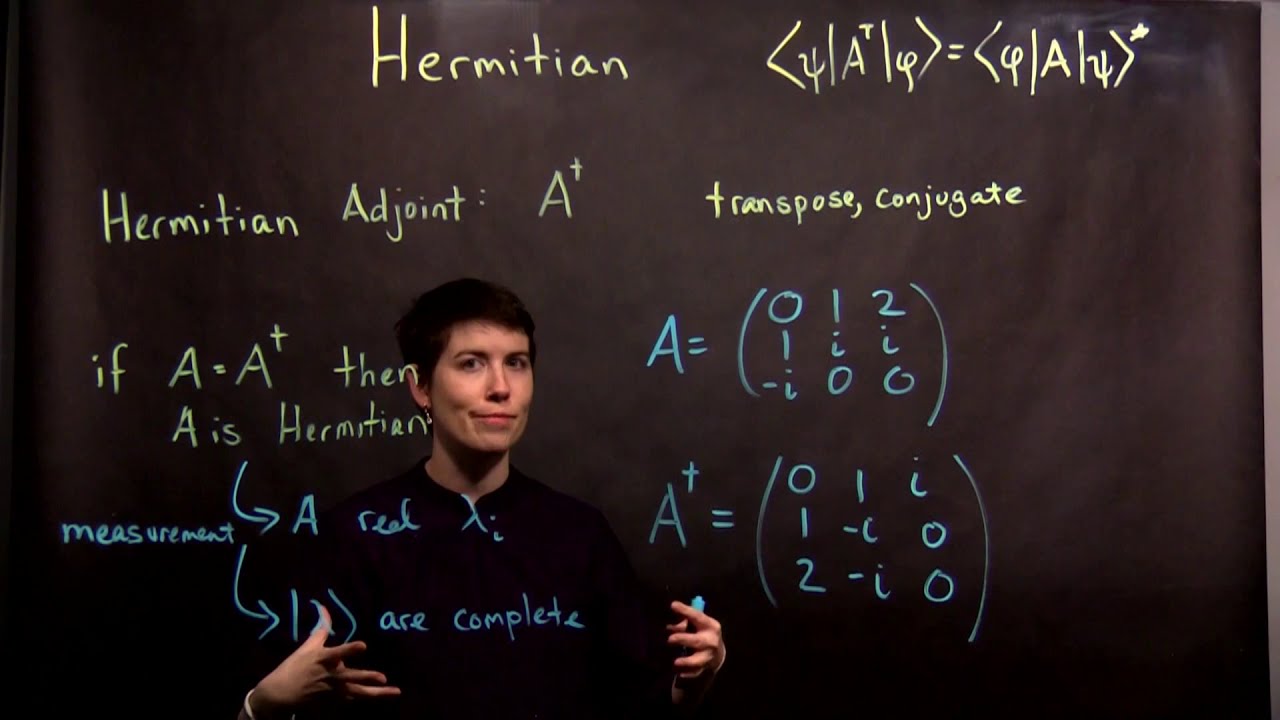 Hermitian
⟨ψ|A†|φ⟩=⟨φ|A|ψ⟩*
Hermitian Adjoint: A†
transpose, conjugate
if A=A† then
A is Hermitian
measurement
A real λi
|λ⟩ are complete
A=
0 1 2
1 i i
-i 0 0
A† =
0 1 i
1 -i 0
2 -i 0